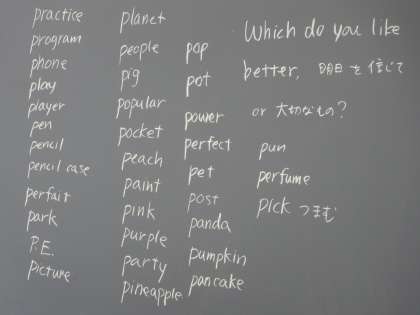 practice
program
phone
play
player
pen
pencil
pencil case
perfait
park
P.E.
picture
planet
people
pig
popular
pocket
peach
paint
pink
purple
party
pineapple
pop
pot
power
perfect
pet
post
panda
pumpkin
pancake
Which do you like
better, 明日を信じて
or 大切なもの?
pun
perfume
pick つまむ